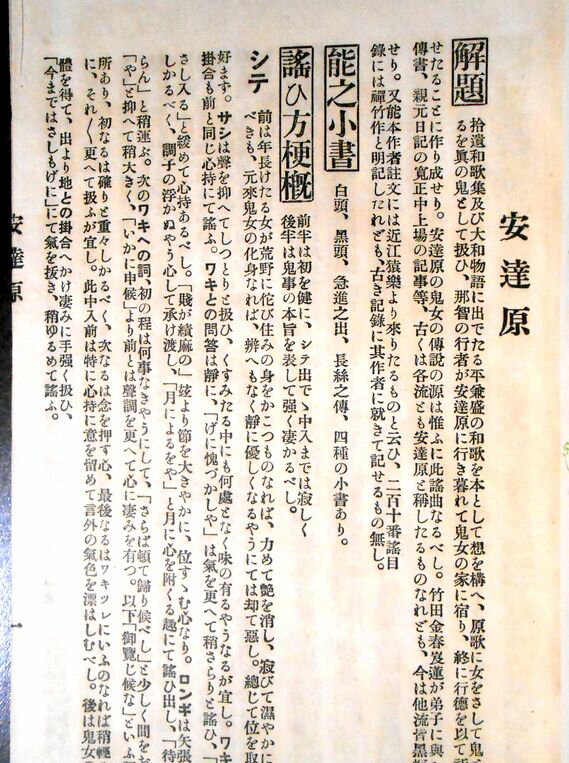 安達原
解題
拾遺和歌集及び大和物語に出でたる平兼盛の和歌を本として想を構へ、原歌に女をさして鬼
るを眞の鬼として扱ひ、那智の行者が安達原に行き暮れて鬼女の家に宿り、終に行德を以て
せたることに作り成せり。安達原の鬼女の傳說の源は惟ふに此謠曲なるべし。竹田金春岌蓮が弟子に與
傳書、親元日記の寛正中上場の記事等、古くは各流とも安達原と稱したるものなれども、今は他流皆黑
せり。又能本作者註文には近江猿樂より來りたるものと云ひ、二百十番謠目
錄には禪竹作と明記したれども、古き記錄に其作者に就きて記せるもの無し。
能之小書
白頭、黑頭、急進之出、長絲之傳、四種の小書あり。
謠ひ方梗概
前半は初を健に、シテ出でゝ中入までは寂しく
後半は鬼事の本旨を表して强く凄かるべし。
シテ
前は年長けたる女が荒野に佗び住みの身をかこつものなれば、力めて艶を消し、寂びて濕やかに
べきも、元來鬼女の化身なれば、辨へもなく靜に優しくなるやうにては却て惡し。總じて位を取
好まず。サシは聲を抑へてしつとりと扱ひ、くすみたる中にも何處となく味の有るやうなるが宜し。ワキ
掛合も前と同じ心持にて謠ふ。ワキとの問答は靜に、「げに愧づかしや」は氣を更へて稍さらりと謠ひ、「
さし入る」と緩めて心持あるべし。「賤が績麻の」玆より節を大きやかに、位すゝむ心なり。ロンギは矢張
しかるべく、調子の浮かぬやう心して承け渡し、「月によるをや」と月に心を附くる趣にて謠ひ出し、「待
らん」と稍運ぶ。次のワキへの詞、初の程は何事なきやうにして、「さらば頓て歸り候べし」と少しく間をお
「や」と抑へて稍大きく、「いかに申候」より前とは聲調を更へて心に凄みを有つ。以下「御覽じ候な」といふ
所あり、初なるは確りと重々しかるべく、次なるは念を押す心、最後なるはワキツレにいふのなれば稍輕
に、それ〴〵更へて扱ふが宜し。此中入前は特に心持に意を留めて言外の氣色を漂はしむべし。後は鬼女
體を得て、出より地との掛合へかけ凄みに手强く扱ひ、
「今まではさしもげに」にて氣を拔き、稍ゆるめて謠ふ。
安達原
一